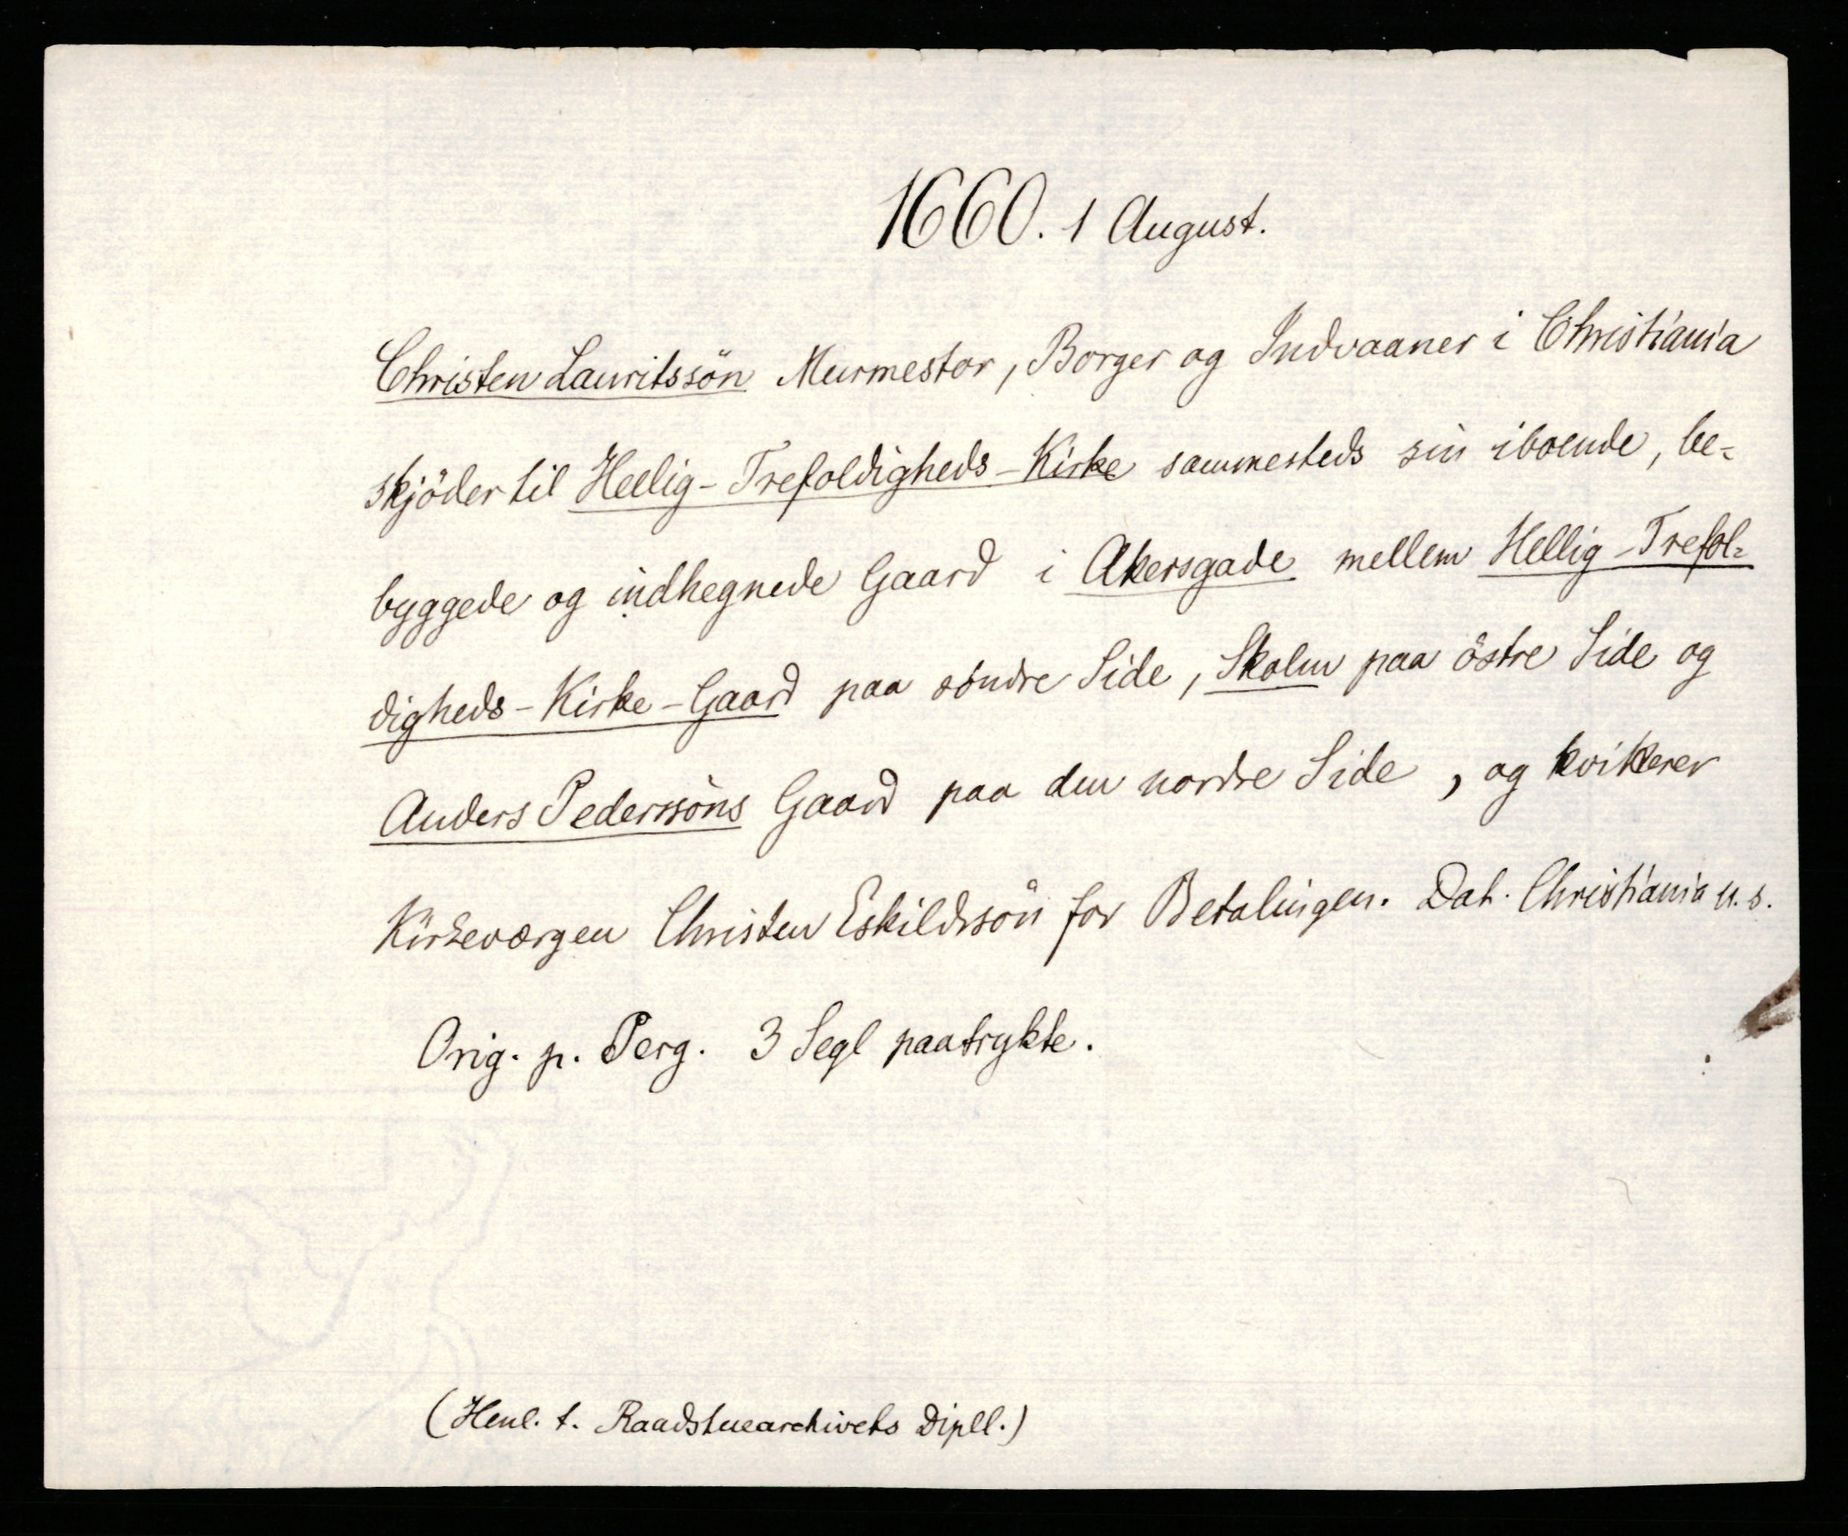 1660. 1 August.
Christen Lauritssön Murmester, Borger og Indvaaner i Christiania
skjöder til Hellig-Trefoldigheds-Kirke sammesteds sin iboende, be=
byggede og indhegnede Gaard i Akersgade mellem Hellig-Trefol=
digheds-Kirke-Gaard paa söndre Side, Skolen paa östre Side og
Anders Pederssöns Gaard paa den nordre Side, og kvitterer
Kirkeværgen Christen Eskildssön for Betalingen. Dat. Christiania u. s.
Orig. p. Perg. 3 Segl paatrykte.
(Henl. t. Raadstuearchivets Dipll.)